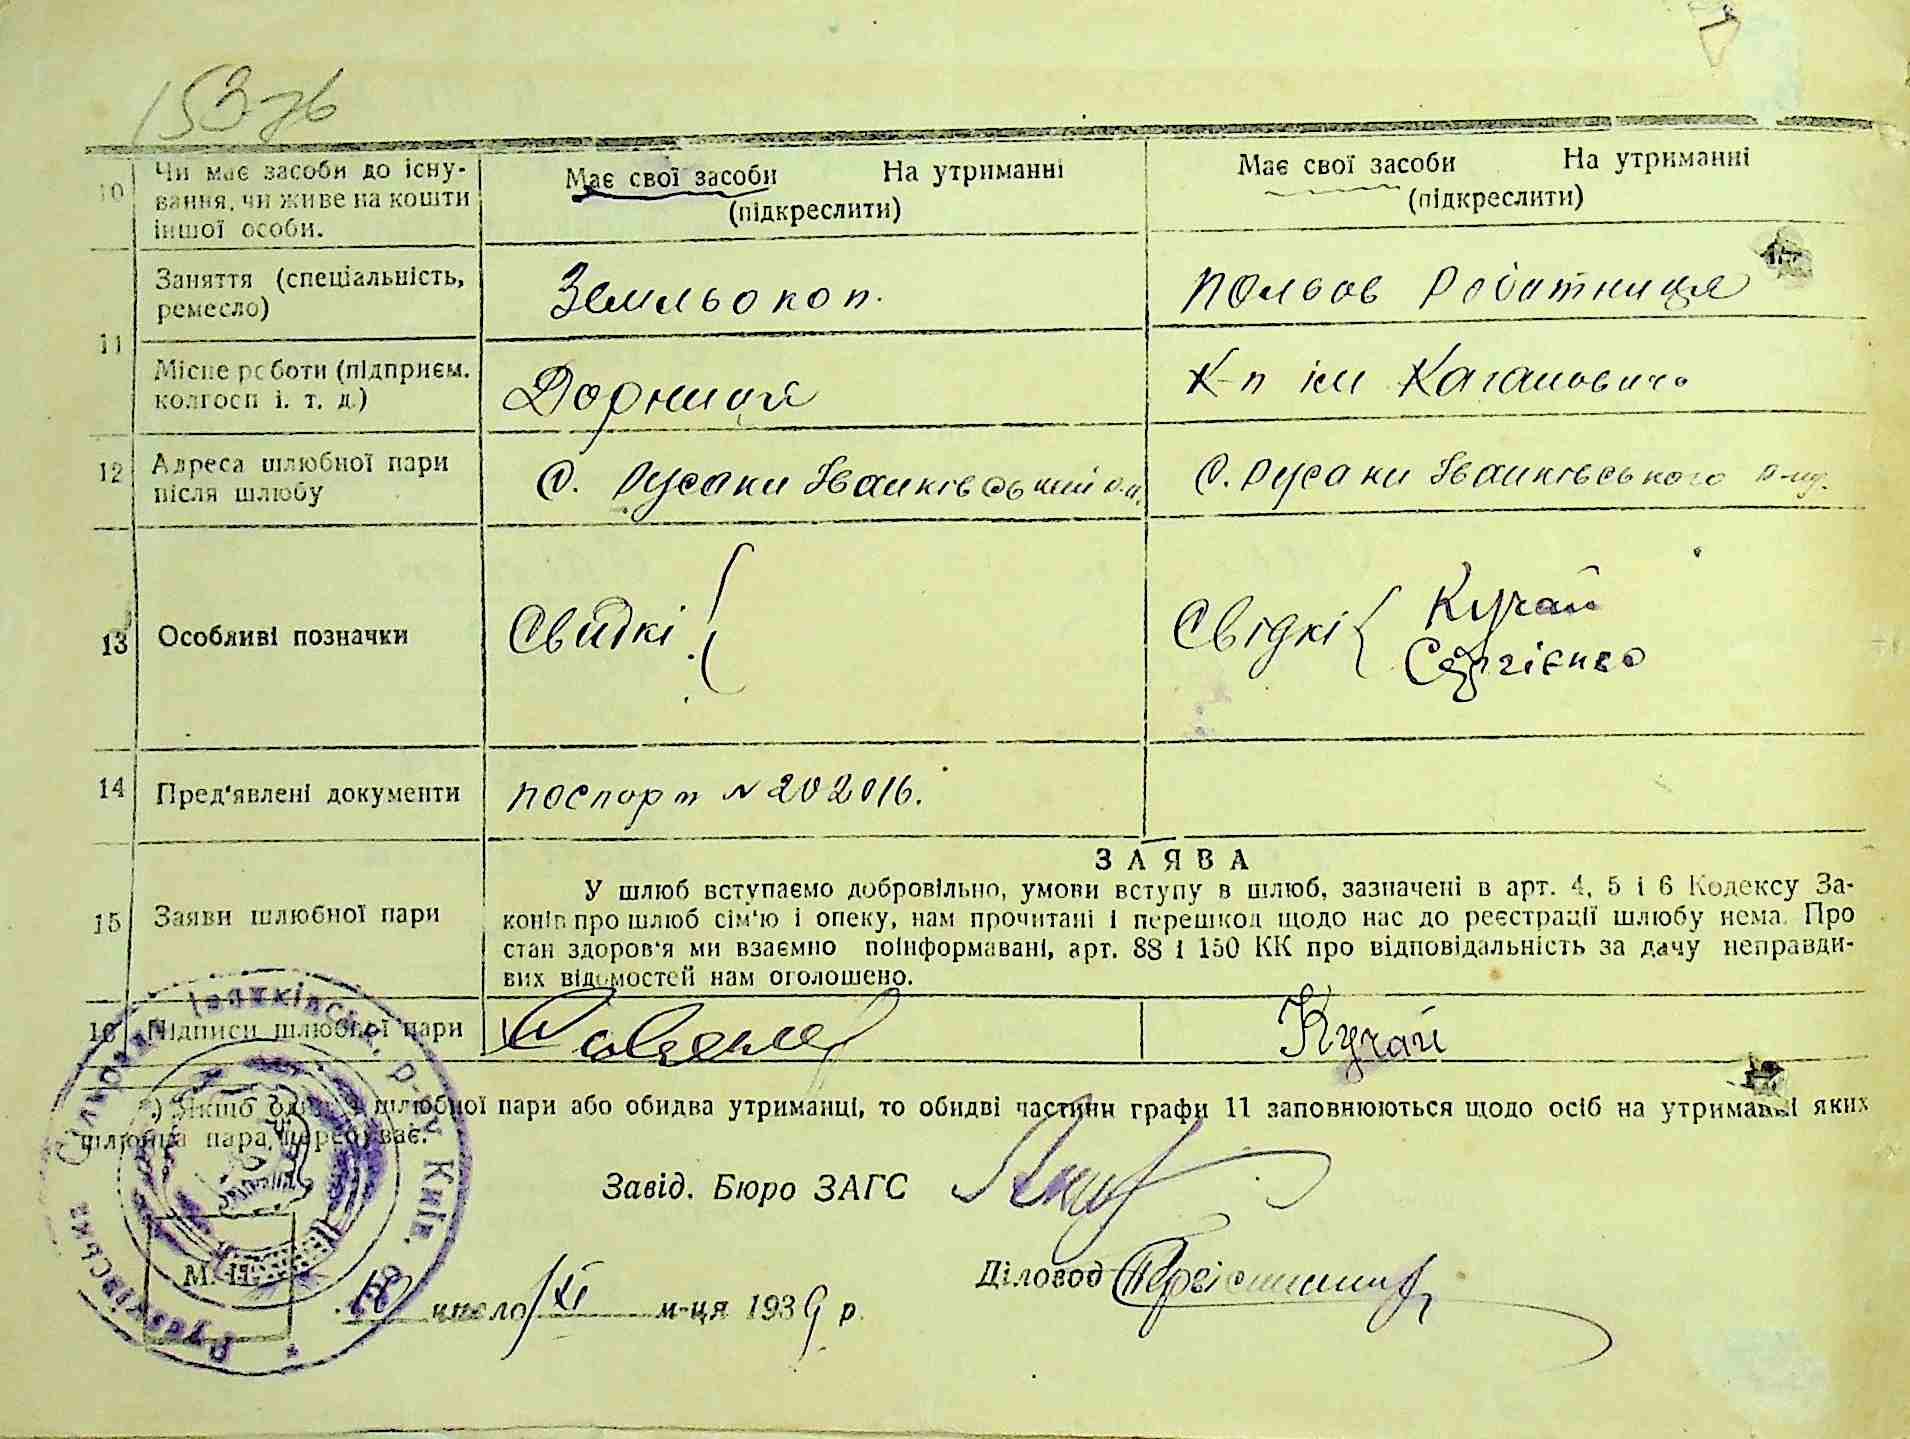 153-76
10 Чи має засоби до існу- Має свої засоби На утриманні Має свої засоби На утриманні
вання, чи живе на кошти (підкреслити) (підкреслити)
іншої особи.
Заняття (спеціальність, Земльокоп. Польов Робітниця
ремесло)
11
Місце роботи (підприєм. Дорниця К-п ім Кагановича
колгосп і. т. д.)
12 Адреса шлюбної пари С. Русаки Іванківський р-н. С. Русаки Іванківського р-ну.
після шлюбу
13 Особливі позначки Свидкі { Свідкі { Кучай
Сергієнко
14 Пред'явлені документи поспорт N 202016.
ЗАЯВА
15 Заяви шлюбної пари
У шлюб вступаємо добровільно, умови вступу в шлюб, зазначені в арт. 4, 5 і 6 Кодексу За-
конів про шлюб сім'ю і опеку, нам прочитані і перешкод щодо нас до реєстрації шлюбу нема. Про
стан здоров'я ми взаємно поінформавані, арт. 88 і 150 КК про відповідальність за дачу неправди-
вих відомостей нам оголошено.
16 Підписи шлюбної пари Кучай
*) Якщо один з шлюбної пари або обидва утриманці, то обидві частини графи 11 заповнюються щодо осіб на утриманні яких
шлюбна пара перебуває.
Завід. Бюро ЗАГС
Діловод
М. П.
число XI м-ця 1939 р.
Русаківська Сільрада Іванківськ. р-ну Київ. обл.